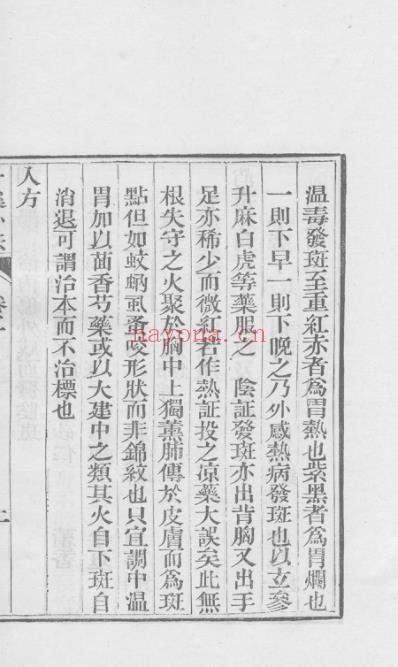 温毒發斑至重紅赤者爲胃熱也紫黑者爲胃爛也
一則下早一則下晚之乃外感熱病發斑也以玄參
升麻白虎等藥服之 陰証發斑亦出背胸又出手
足亦稀少而微紅若作熱証投之凉藥大誤矣此無
根失守之火聚於胸中上獨薰肺傳於皮膚而爲斑
點但如蚊蚋虱蚤咬形狀而非錦紋也只宜調中温
胃加以茴香芍藥或以大建中之類其火自下斑自
消退可謂治本而不治標也
入方
nayona.com